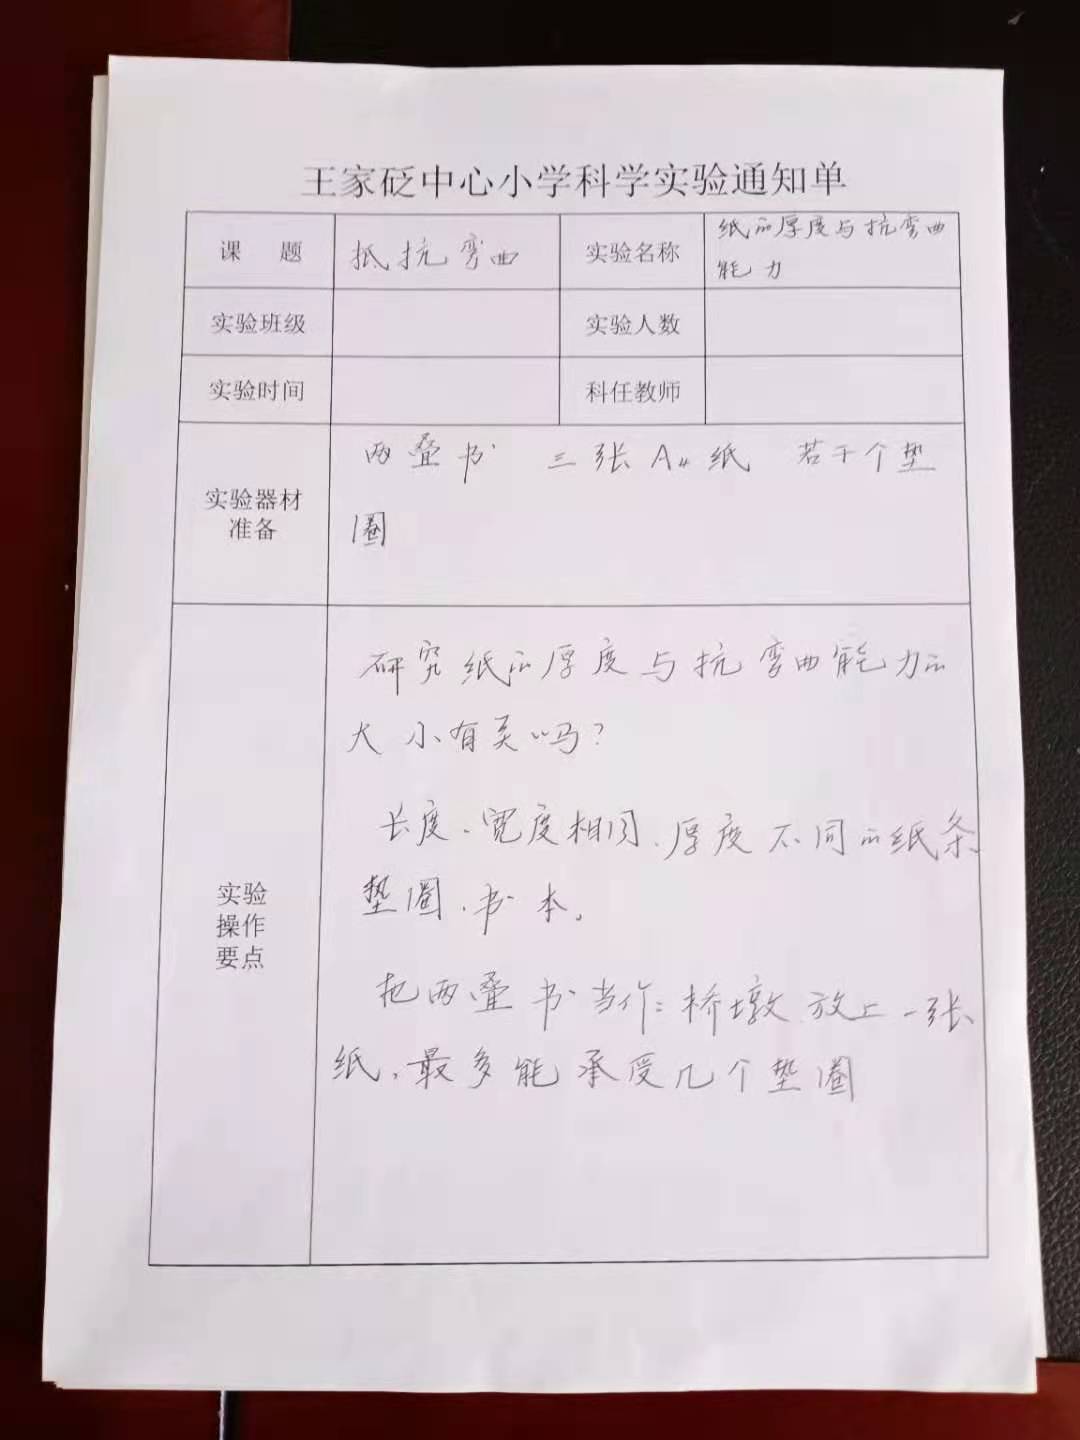 王家砭中心小学科学实验通知单
课 题 抵抗弯曲 实验名称 纸的厚度与抗弯曲
能力
实验班级 实验人数
实验时间 科任教师
实验器材
准备
两叠书 三张A4纸 若干个垫
圈
实验
操作
要点
研究纸的厚度与抗弯曲能力的
大小有关吗?
长度、宽度相同、厚度不同的纸条
垫圈、书本。
把两叠书当作桥墩放上一张
纸,最多能承受几个垫圈